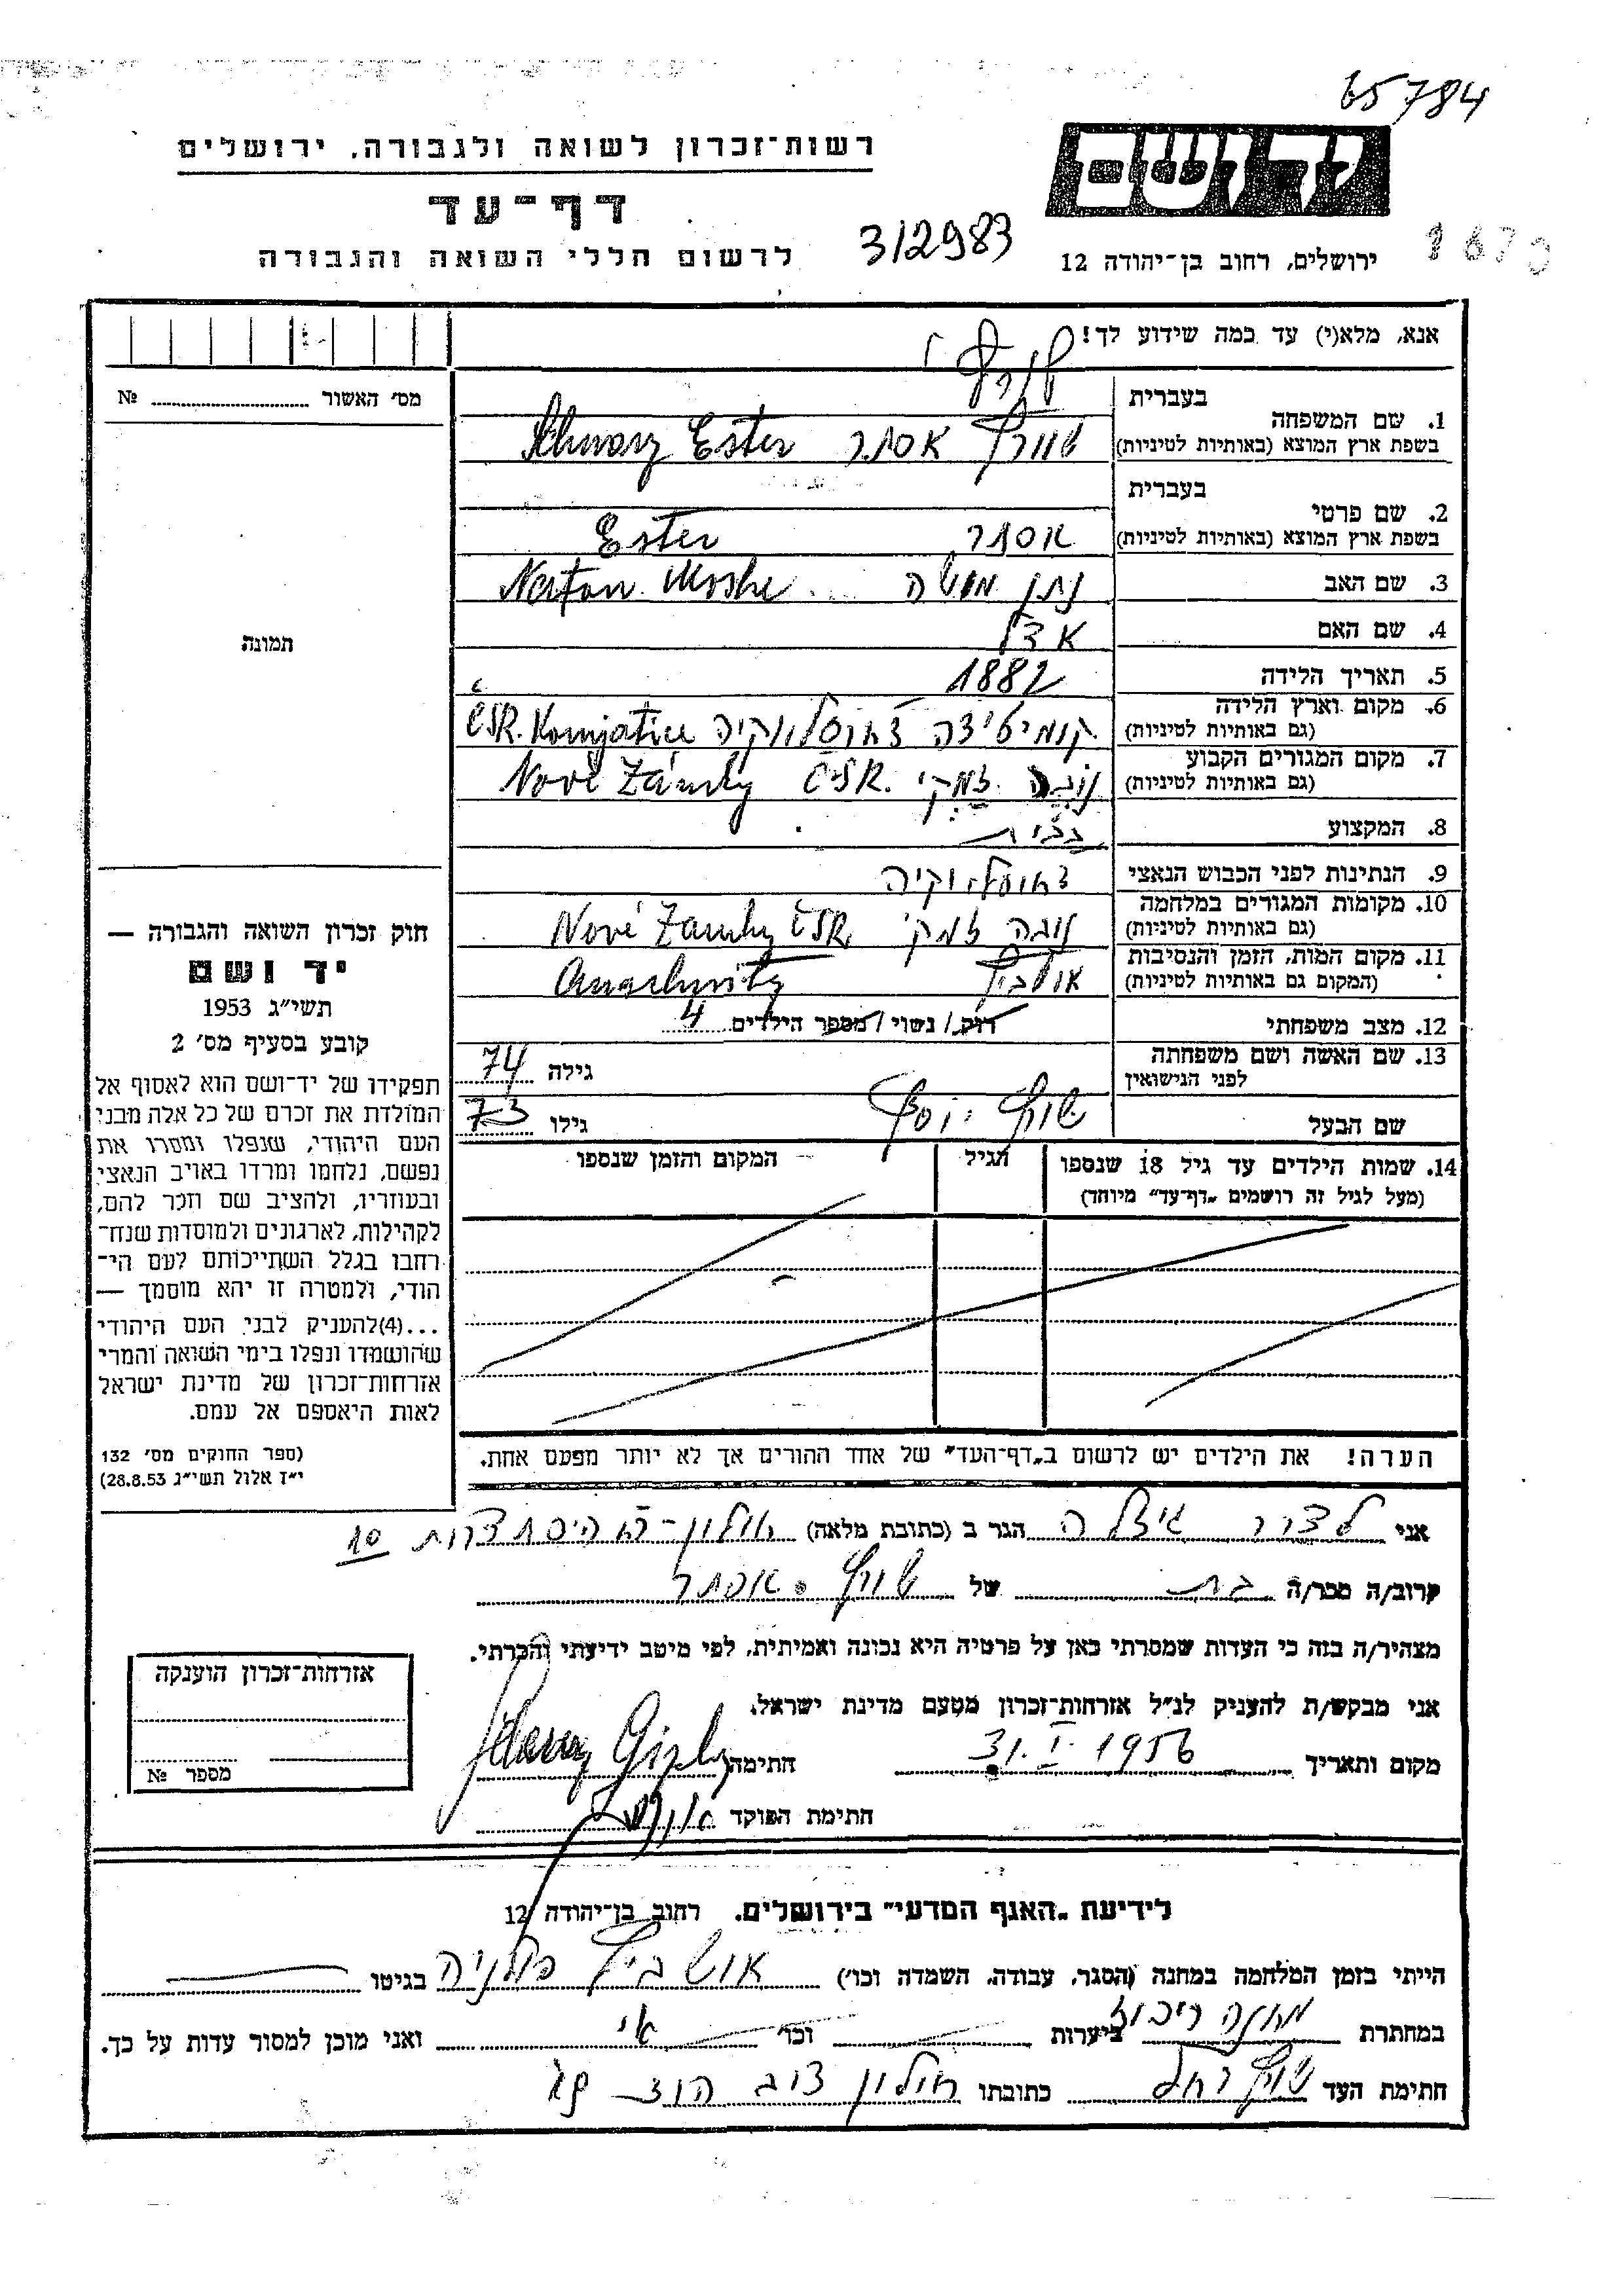 65784
רשות־זכרון לשואה ולגבורה, ירושלים
יד ושם
דף־עד
לרשום חללי השואה והגבורה
312983
ירושלים, רחוב בן־יהודה 12
אנא, מלא(י) עד כמה שידוע לך!
מס׳ האשור № 
שורץ
1. שם המשפחה
בעברית
בשפת ארץ המוצא (באותיות לטיניות)
שוורץ אסתר Schwarz Ester
2. שם פרטי
בעברית
בשפת ארץ המוצא (באותיות לטיניות)
אסתר Ester
3. שם האב נתן משה Natan Moshe
4. שם האם אדל
5. תאריך הלידה 1882
6. מקום וארץ הלידה
(גם באותיות לטיניות)
קומיטיצה צ׳כוסלווקיה ČSR. Komjatice
7. מקום המגורים הקבוע
(גם באותיות לטיניות)
נובה זמקי Nové Zámky ČSR.
8. המקצוע
9. הנתינות לפני הכבוש הנאצי
10. מקומות המגורים במלחמה
(גם באותיות לטיניות)
נובה זמקי Nové Zamky ČSR.
11. מקום המות, הזמן והנסיבות
(המקום גם באותיות לטיניות)
אושביץ Auschwitz
12. מצב משפחתי
רוק / נשוי / מספר הילדים 4
13. שם האשה ושם משפחתה
לפני הנישואין
גילה 74
שם הבעל שורץ יוסף גילו 73
14. שמות הילדים עד גיל 18 שנספו
(מעל לגיל זה רושמים „דף־עד״ מיוחד)
הגיל
המקום והזמן שנספו
הערה! את הילדים יש לרשום ב„דף־העד״ של אחד ההורים אך לא יותר מפעם אחת.
תמונה
חוק זכרון השואה והגבורה —
יד ושם
תשי״ג 1953
קובע בסעיף מס׳ 2
תפקידו של יד־ושם הוא לאסוף אל
המולדת את זכרם של כל אלה מבני
העם היהודי, שנפלו ומסרו את
נפשם, נלחמו ומרדו באויב הנאצי
ובעוזריו, ולהציב שם וזכר להם,
לקהילות, לארגונים ולמוסדות שנח־
רבו בגלל השתייכותם לעם הי־
הודי, ולמטרה זו יהא מוסמך —
...(4) להעניק לבני העם היהודי
שהושמדו ונפלו בימי השואה והמרי
אזרחות־זכרון של מדינת ישראל
לאות היאספם אל עמם.
(ספר החוקים מס׳ 132
י״ז אלול תשי״ג 28.8.53)
אני לדרר גיזלה הגר ב (כתובת מלאה) חולון־ ההיסתדרות 10
קרוב/ה מכר/ה בת של שורץ אסתר
מצהיר/ה בזה כי העדות שמסרתי כאן על פרטיה היא נכונה ואמיתית, לפי מיטב ידיעתי והכרתי.
אני מבקש/ת להעניק לנ״ל אזרחות־זכרון מטעם מדינת ישראל.
מקום ותאריך 31.I.1956 חתימה
חתימת הפוקד
אזרחות־זכרון הוענקה
מספר №
לידיעת „האגף המדעי״ בירושלים. רחוב בן־יהודה 12
הייתי בזמן המלחמה במחנה (הסגר, עבודה, השמדה וכו׳) אושביץ פולניה בגיטו
מחנה ריכוז
במחתרת ביערות וכו׳ ואני מוכן למסור עדות על כך.
חתימת העד שורץ רחל כתובתו חולון